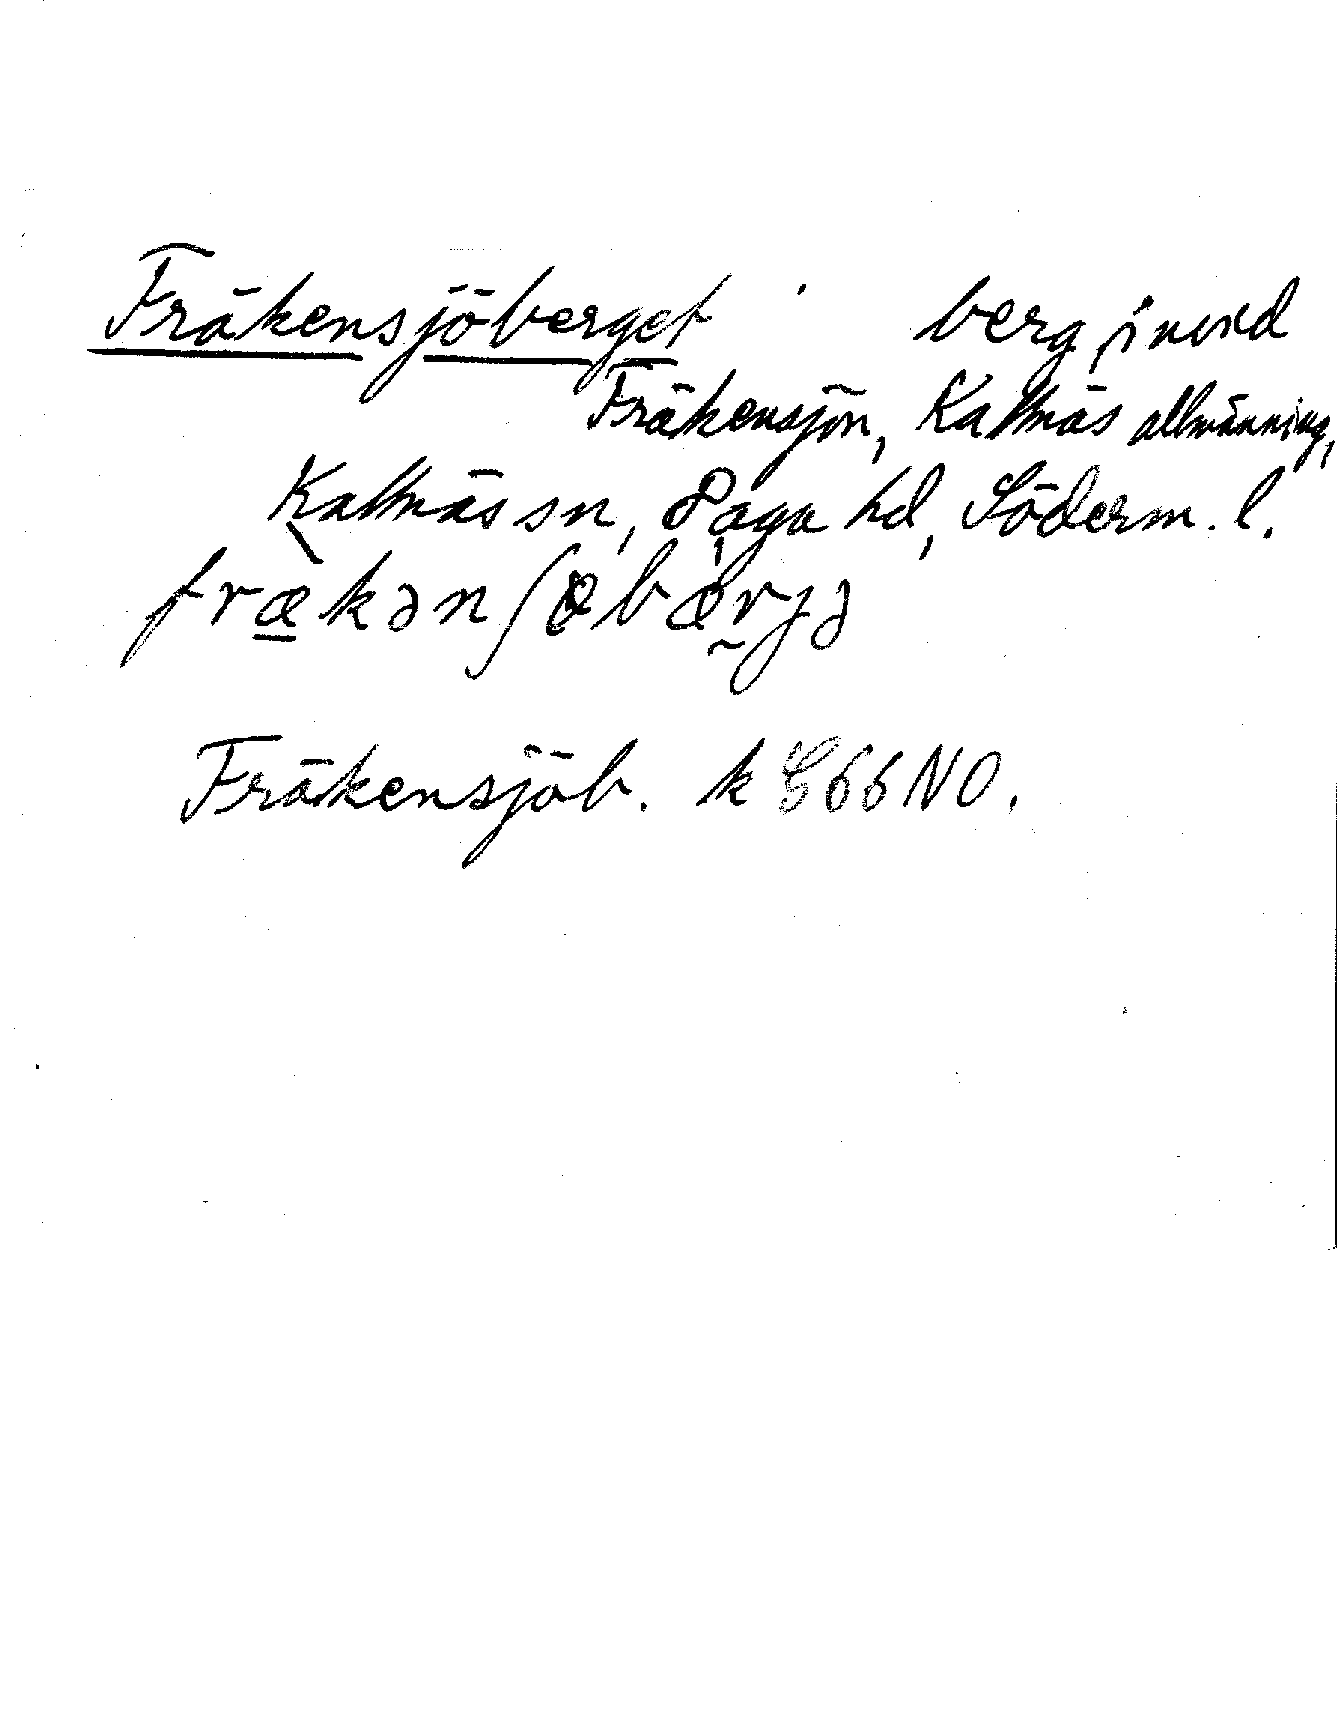 Fräkensjöberget berg invid
Fräkensjön, Kattnäs allmänning,
Kattnäs sn, Daga hd, Söderm. l.
frækənʃøbærjə
Fräkensjöb. k G66NO.